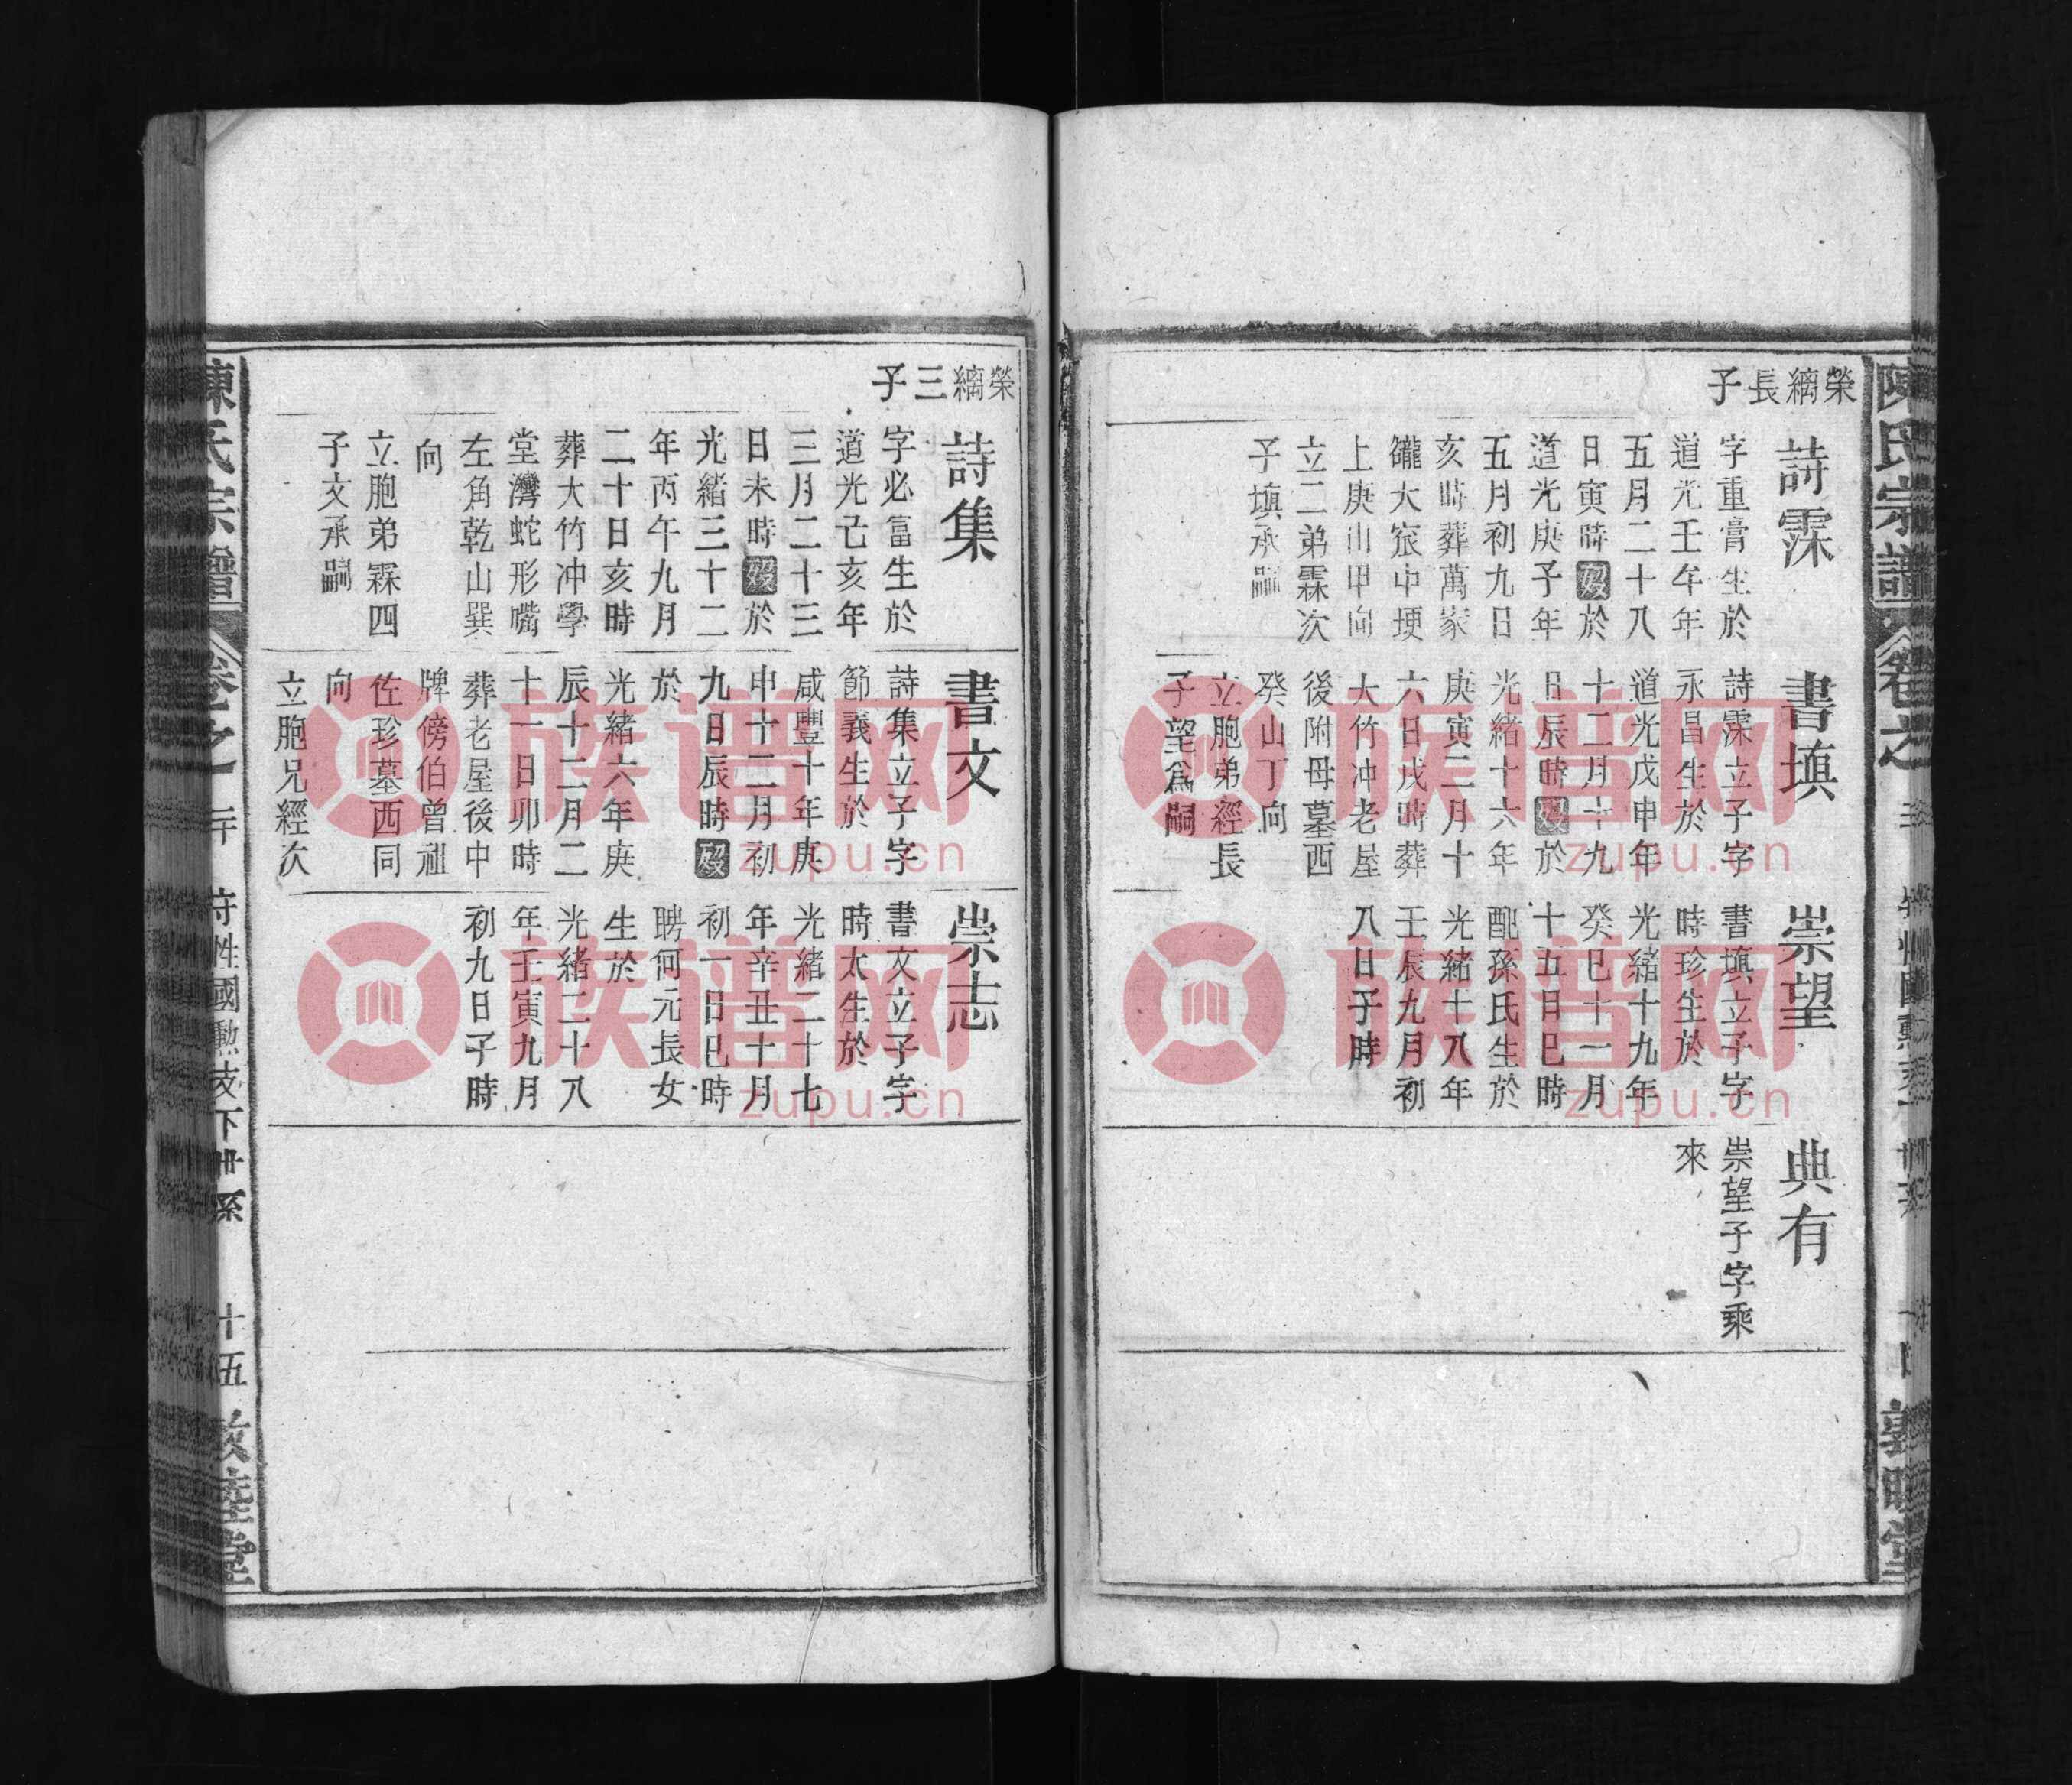 陳氏宗譜
卷之
敦睦堂
榮縭長子
詩霂
字重膏生於
道光壬午年
五月二十八
日寅時歿於
道光庚子年
五月初九日
亥時葬萬家
巃大㝗中埂
上庚山甲向
立二弟霖次
子塡承嗣
書塡
詩霂立子字
永昌生於
道光戊申年
十二月十九
日辰時歿於
光緒十六年
庚寅二月十
六日戌時葬
大竹冲老屋
後附母墓西
癸山丁向
立胞弟經長
子望爲嗣
崇望
書塡立子字
時珍生於
光緒十九年
癸巳十一月
十五日巳時
配孫氏生於
光緒十八年
壬辰九月初
八日子時
典有
崇望子字乘
來
榮縭三子
詩集
字必富生於
道光己亥年
三月二十三
日未時歿於
光緒三十二
年丙午九月
二十日亥時
葬大竹冲學
堂灣蛇形嘴
左角乾山巽
向
立胞弟霖四
子文承嗣
書文
詩集立子字
節義生於
咸豐十年庚
申十二月初
九日辰時歿
於
光緒六年庚
辰十二月二
十一日卯時
葬老屋後中
牌傍伯曾祖
佐珍墓西同
向
立胞兄經次
崇志
書文立子字
時太生於
光緒二十七
年辛丑十月
初一日巳時
聘何元長女
生於
光緒二十八
年壬寅九月
初九日子時
陳氏宗譜
卷之一
國勲支下世系
十五
敦睦堂
族谱网
zupu.cn
族谱网
zupu.cn
族谱网
zupu.cn
族谱网
zupu.cn